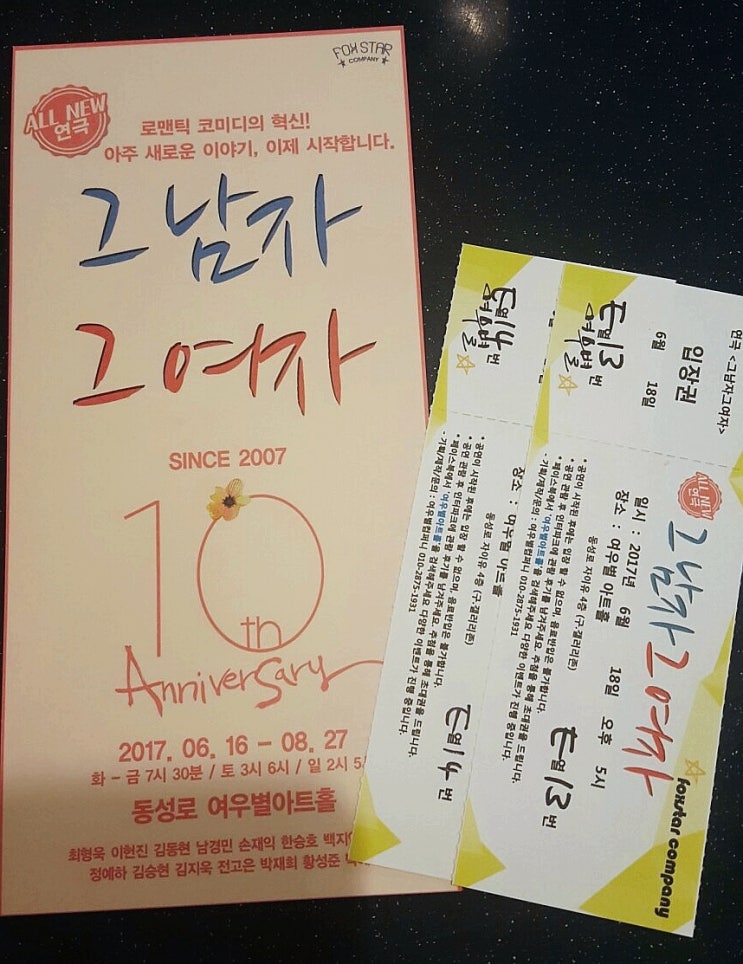 FOXSTAR
COMPANY
ALL NEW
연극
로맨틱 코미디의 혁신!
아주 새로운 이야기, 이제 시작합니다.
그남자
그여자
SINCE 2007
10th
Anniversary
2017. 06. 16 – 08. 27
화 – 금 7시 30분 / 토 3시 6시 / 일 2시 5
동성로 여우별아트홀
최형욱 이현진 김동현 남경민 손재익 한승호
정예하 김승현 김지욱 전고은 박재희 황성준
연극 <그남자그여자>
입장권
6월 18일
E열 13 번
여우별
ALL NEW
연극
그남자그여자
일시 : 2017년 6월 18일 오후 5시
장소 : 여우별 아트홀
동성로 자이유 4층 (구.갤러리존)
E열 13 번
* 공연이 시작된 후에는 입장 할 수 없으며, 음료반입은 불가합니다.
* 공연 관람 후 인터파크에 관람 후기를 남겨주세요. 추첨을 통해 초대권을 드립니다.
* 페이스북에서 '여우별아트홀'을 검색해주세요 다양한 이벤트가 진행 중입니다.
- 기획/제작/문의 : 여우별컴퍼니 010-2875-1931
foxstar company
E열 14 번
여우별
장소 : 여우별 아트홀
동성로 자이유 4층 (구.갤러리존)
E열 14 번
* 공연이 시작된 후에는 입장 할 수 없으며, 음료반입은 불가합니다.
* 공연 관람 후 인터파크에 관람 후기를 남겨주세요. 추첨을 통해 초대권을 드립니다.
* 페이스북에서 '여우별아트홀'을 검색해주세요 다양한 이벤트가 진행 중입니다.
- 기획/제작/문의 : 여우별컴퍼니 010-2875-1931